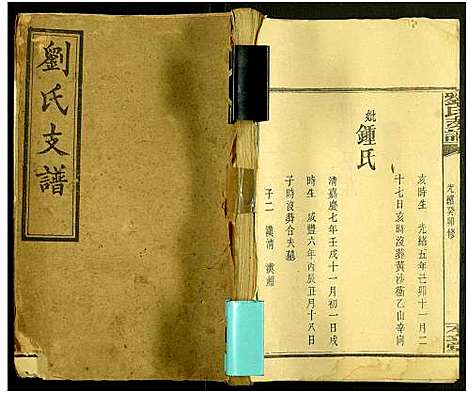 劉氏支譜
劉氏支譜
光緒癸卯修
亥時生 光緒五年己卯十一月二
十七日亥時沒葬黃沙衝乙山辛向
妣鍾氏
清嘉慶七年壬戌十一月初一日戌
時生 咸豐六年丙辰正月十八日
子時沒葬合夫墓
子二 漢清 漢湘